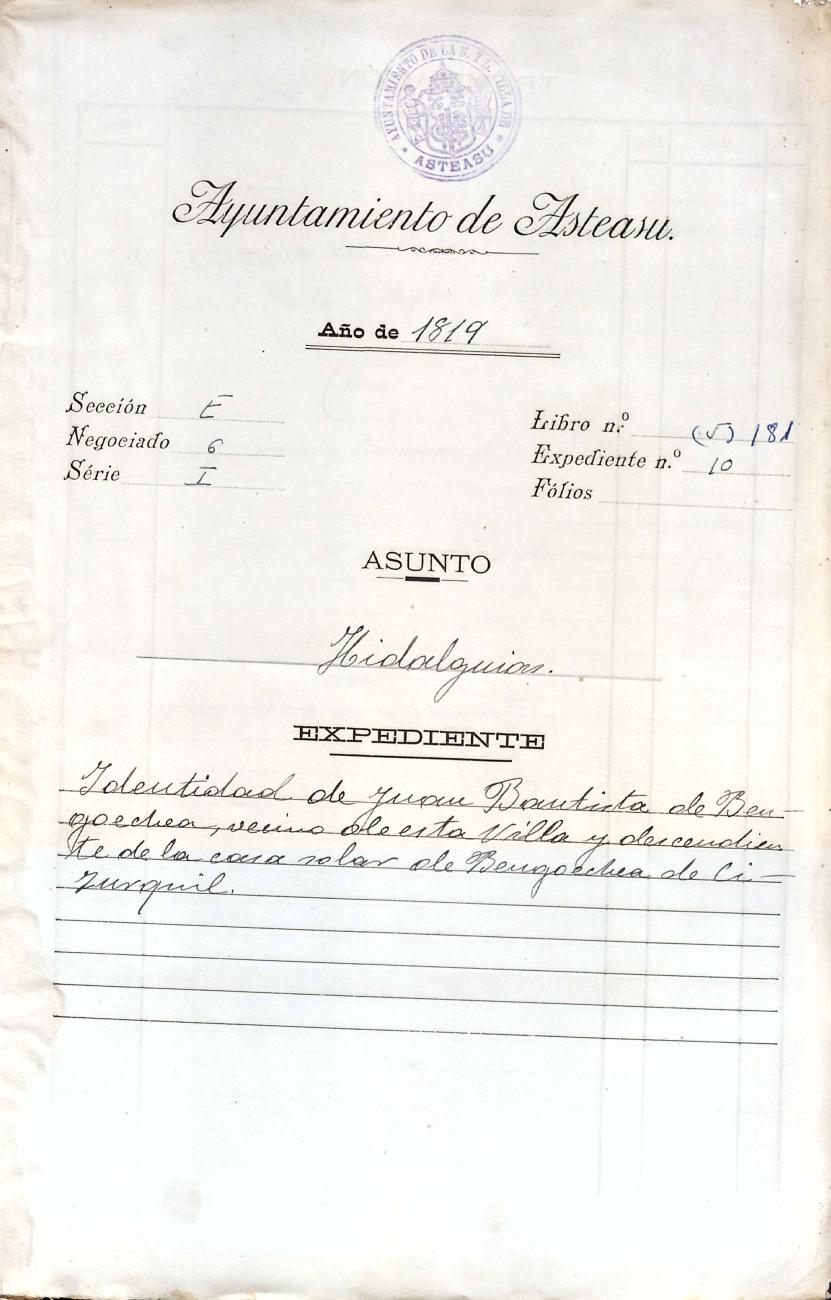 AYUNTAMIENTO DE LA N. Y L. VILLA DE
* ASTEASU *
Ayuntamiento de Asteasu.
Año de 1819
Sección E
Negociado 6
Série I
Libro n.º (5) 181
Expediente n.º 10
Fólios
ASUNTO
Hidalguias.
EXPEDIENTE
Identidad de Juan Bautista de Ben-
goechea, vecino de esta Villa y descendien
te de la casa solar de Bengoechea de Ci-
zurquil.